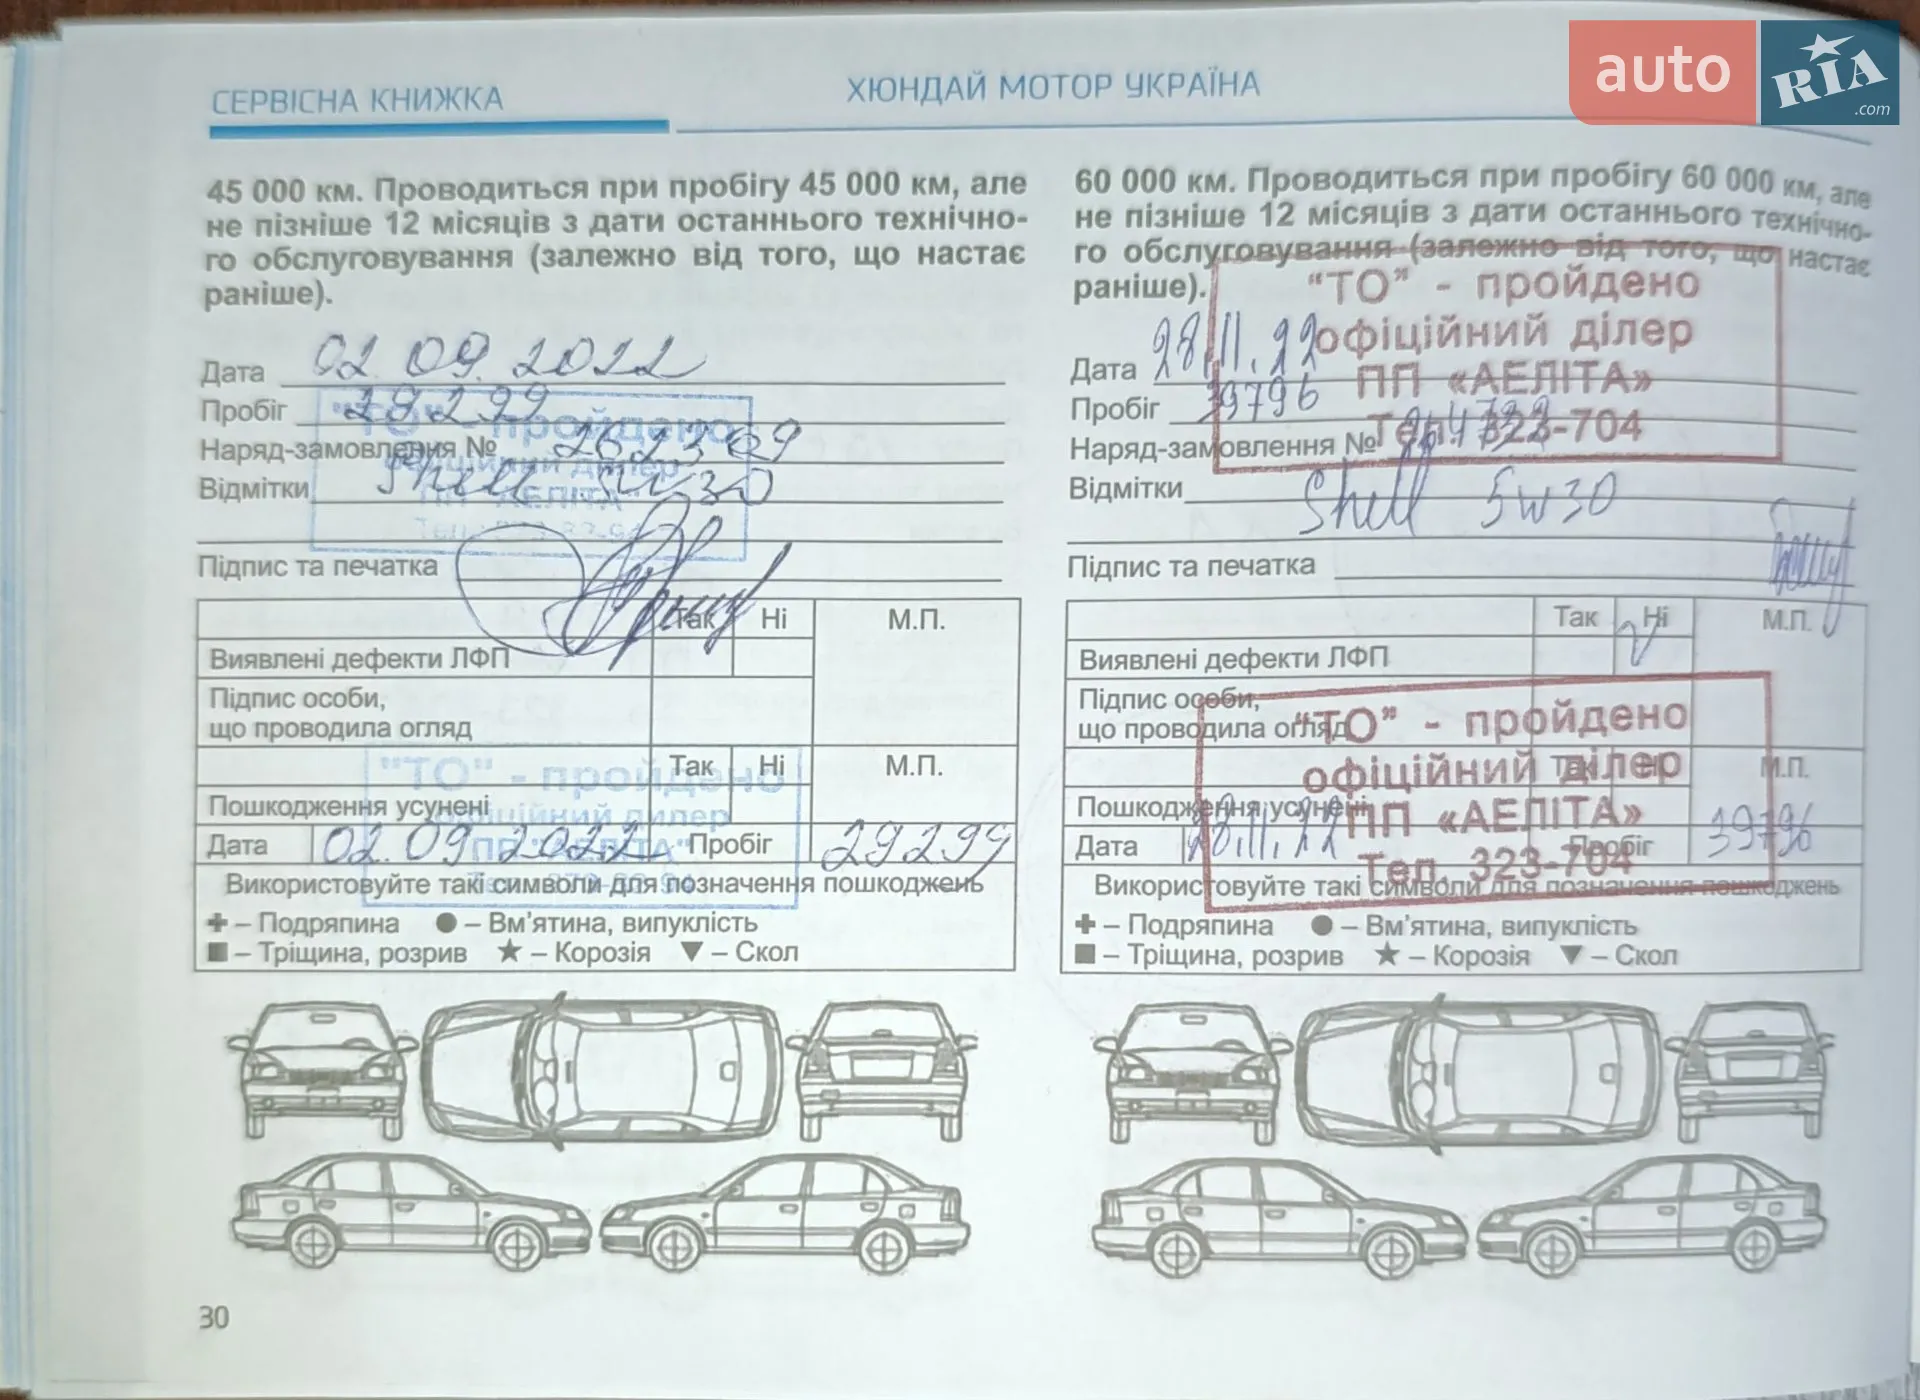 auto RIA.com
СЕРВІСНА КНИЖКА
ХЮНДАЙ МОТОР УКРАЇНА
45 000 км. Проводиться при пробігу 45 000 км, але
не пізніше 12 місяців з дати останнього технічно-
го обслуговування (залежно від того, що настає
раніше).
Дата 02.09.2022
Пробіг 29299
Наряд-замовлення №
Відмітки Shell 5w30
"ТО" - пройдено
офіційний дилер
ПП "АЕЛІТА"
Підпис та печатка
Так Ні М.П.
Виявлені дефекти ЛФП
Підпис особи,
що проводила огляд
Так Ні М.П.
Пошкодження усунені
Дата 02.09.2022 Пробіг 29299
"ТО" - пройдено
офіційний дилер
ПП "АЕЛІТА"
Використовуйте такі символи для позначення пошкоджень
+ – Подряпина ● – Вм'ятина, випуклість
■ – Тріщина, розрив ★ – Корозія ▼ – Скол
60 000 км. Проводиться при пробігу 60 000 км, але
не пізніше 12 місяців з дати останнього технічно-
го обслуговування (залежно від того, що настає
раніше).
Дата 28.11.22
Пробіг 39796
Наряд-замовлення №
Відмітки Shell 5w30
"ТО" - пройдено
офіційний ділер
ПП «АЕЛІТА»
Тел. 323-704
Підпис та печатка
Так Ні М.П.
Виявлені дефекти ЛФП
Підпис особи,
що проводила огляд
Так Ні М.П.
Пошкодження усунені
Дата 28.11.22 Пробіг 39796
"ТО" - пройдено
офіційний ділер
ПП «АЕЛІТА»
Тел. 323-704
Використовуйте такі символи для позначення пошкоджень
+ – Подряпина ● – Вм'ятина, випуклість
■ – Тріщина, розрив ★ – Корозія ▼ – Скол
30